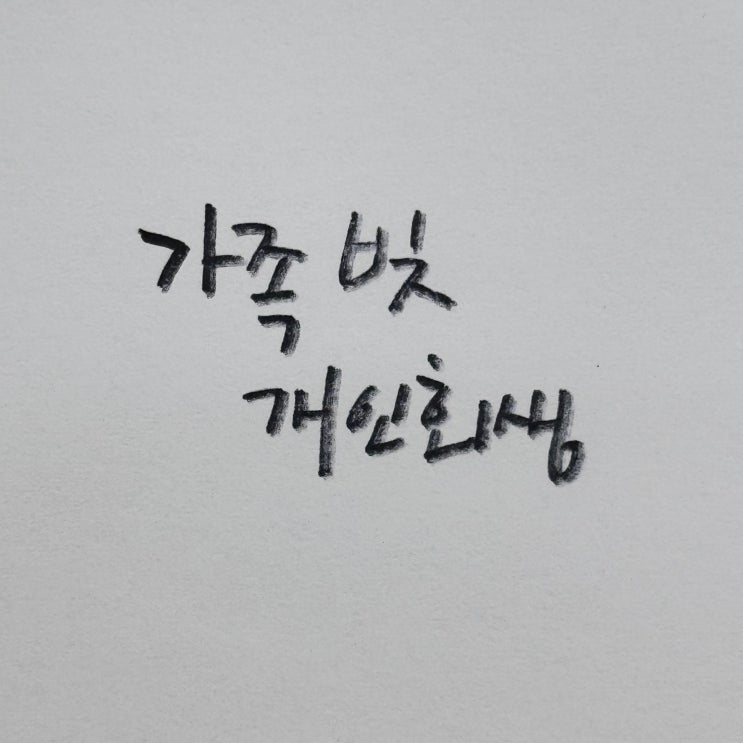 가족 빚
개인회생